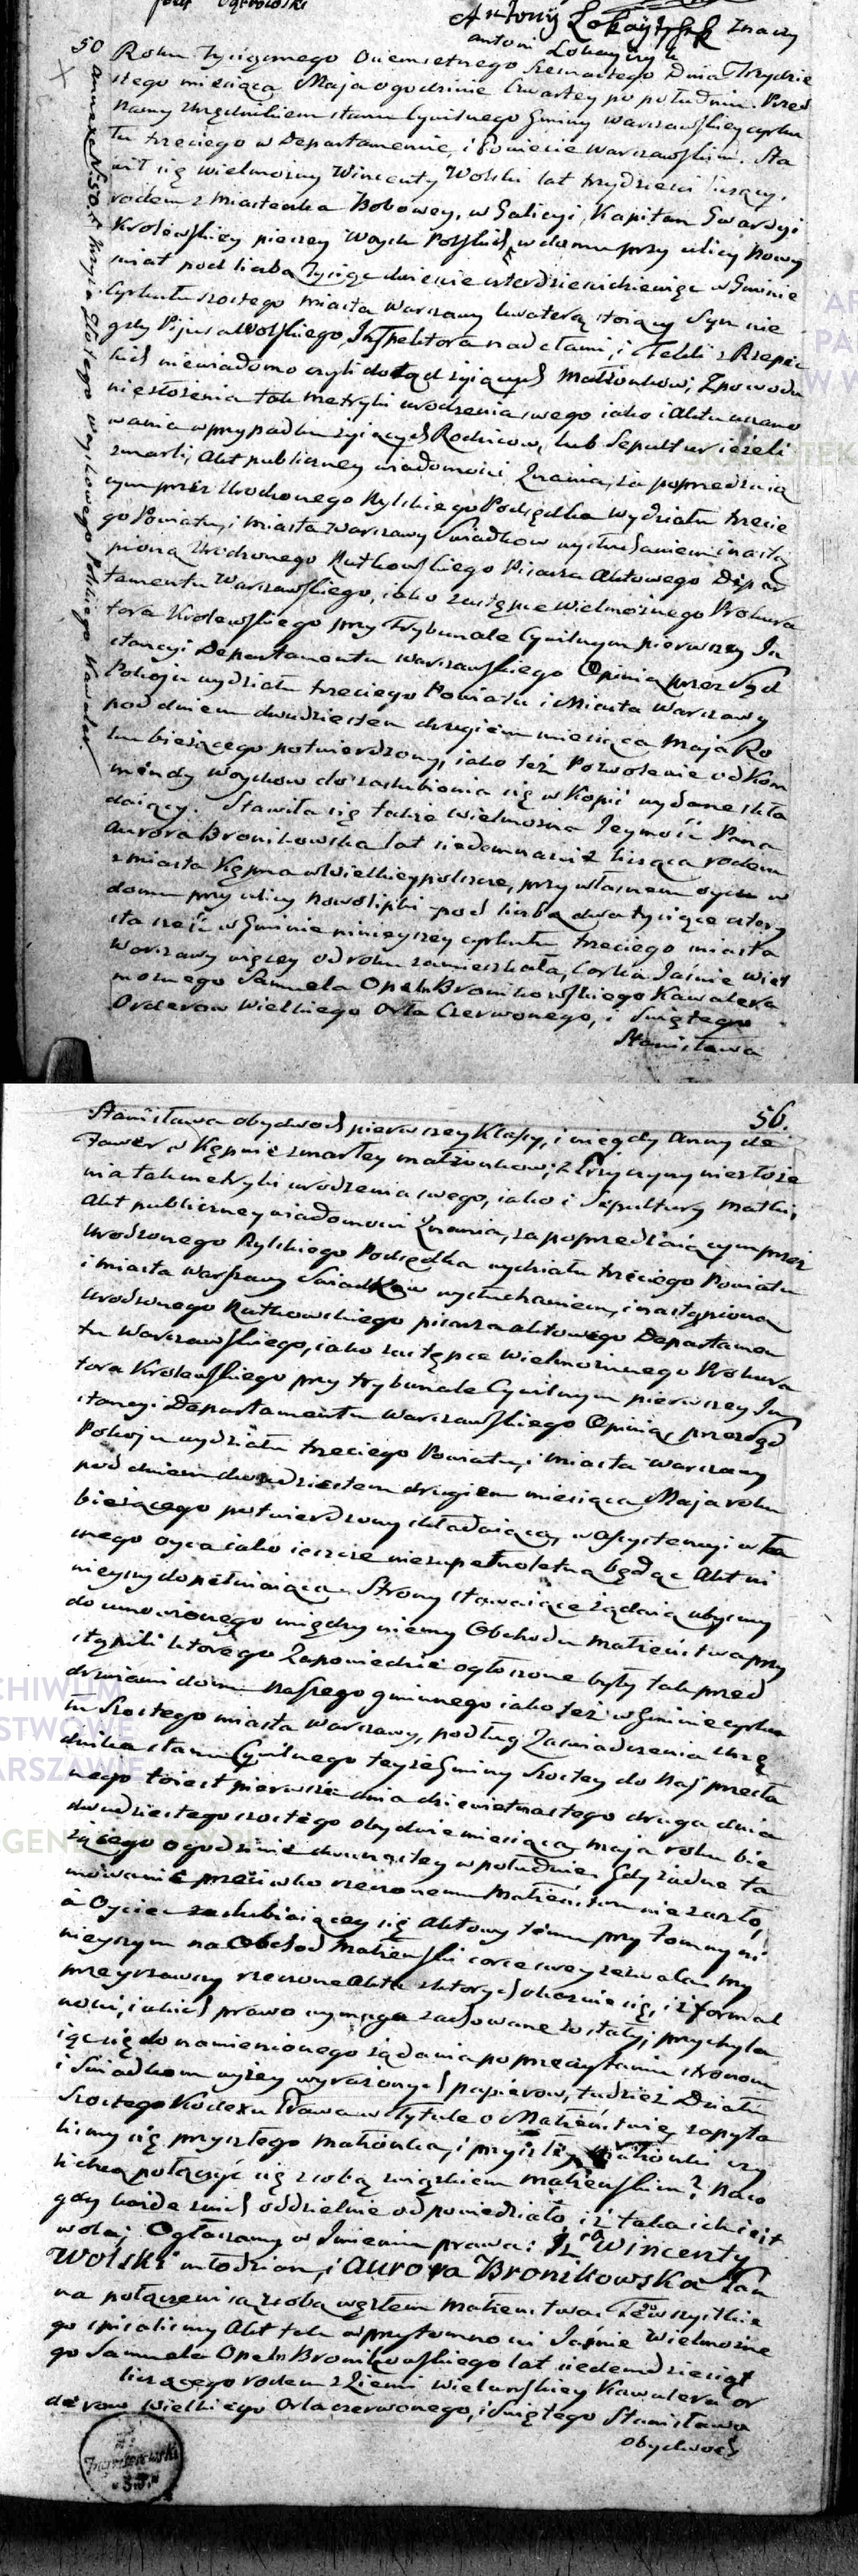 Antoni Lokayczyk znaczy
50
Roku Tysiącznego Osiemsetnego Szesnastego Dnia Trzydzie
stego miesiąca Maja o godzinie Czwartey po południu. Przed
namy Urzędnikiem stanu Cywilnego Gminy Warszawskiey cyrku
łu trzeciego w Departamencie i Powiecie Warszawskim. Sta
wił się wielmożny Wincenty Wolski lat trzydzieści liczący,
rodem z miasteczka Bobowey, w Galicyi, Kapitan Gwardyi
Krolewskiey pieszey Woysk Polskich, w domu przy ulicy Nowy
świat pod liczbą Tysiąc dwieście czterdzieści dziewięć w Gminie
Cyrkułu szostego miasta Warszawy kwaterą stoiący Syn nie
gdy Pijusa Wolskiego, Inspektora nad cłami, i Tekli z Rzepec
kich niewiadomo czyli dotąd żyiących Małżonkow; Z powodu
niezłożenia tak metryki urodzenia swego iako i Aktu uszano
wania w przypadku żyiących Rodzicow, lub Sepultur ieżeli
zmarli, Akt publiczney wiadomości Znania, za poprzedzaią
cym przez Urodzonego Rylskiego Podsędka Wydziału trzecie
go Powiatu, i miasta Warszawy Świadkow wysłuchaniem i nastą
pioną Urodzonego Rutkowskiego Pisarza Aktowego Depar
tamentu Warszawskiego, iako zastępce Wielmożnego Prokura
tora Krolewskiego przy Trybunale Cywilnym pierwszey In
stancyi Departamentu Warszawskiego Opinią przez Sąd
Pokoju wydziału trzeciego Powiatu i Miasta Warszawy
pod dniem dwudziestem drugiem miesiąca Maja Ro
ku bieżącego potwierdzony, iako też Pozwolenie od Kom
mendy Woyskow do zaślubienia się w Kopii wydane skła
daiący. Stawiła się także Wielmożna Jeymość Panna
Aurora Bronikowska lat siedemnaście licząca rodem
z miasta Kępna w Wielkieypolszcze, przy własnem oycu w
domu przy ulicy Nowolipki pod liczbą dwa tysiące cztery
sta sześć w Gminie ninieyszey cyrkułu trzeciego miasta
Warszawy więcey od roku zamieszkała, Corka Jaśnie Wiel
możnego Samuela Opeln Bronikowskiego Kawalera
Orderow Wielkiego Orła Czerwonego, i Świętego
Stanisława
56.
Stanisława obydwoch pierwszey Klassy, i niegdy Anny de
w Kępnie zmarłey małżonkow; z Przyczyny niezłoże
nia tak metryki urodzenia swego, iako i Sepultury matki,
Akt publiczney wiadomości Znania, za poprzedzaiącym przez
Urodzonego Rylskiego Podsędka wydziału trzeciego Powiatu
i miasta Warszawy Świadkow wysłuchaniem, i nastąpioną
Urodzonego Rutkowskiego pisarza aktowego Departamen
tu Warszawskiego, iako zastępce Wielmożnego Prokura
tora Krolewskiego przy trybunale Cywilnym pierwszey In
stancyi Departamentu Warszawskiego Opinią, przez Sąd
Pokoju wydziału trzeciego Powiatu, i miasta Warszawy
pod dniem dwudziestem drugiem miesiąca Maja roku
bieżącego potwierdzony składaiąca, w assystencyi wła
snego oyca iako ieszcze niezupełnoletną będąc Akt ni
nieyszy dopełniaiąca. Strony stawaiące żądaią abyśmy
do umowionego między niemy Obchodu małżeństwa przy
stąpili ktorego Zapowiedzie ogłoszone były tak przed
drzwiami domu naszego gminnego iako też w Gminie cyrku
łu Szostego miasta Warszawy, podług Zaświadczenia Urzę
dnika stanu Cywilnego teyże Gminy Szostey do Nas przesła
nego to iest pierwsza dnia dziewietnastego druga dnia
dwudziestego szostego obydwie miesiąca maja roku bie
żącego o godzinie dwunastey w południe. Gdy żadne ta
mowanie przeciwko rzeczonemu Małżeństwu nie zaszło,
a Oyciec zaślubiaiącey się Aktowy temu przytomny ni
nieyszym na Obchod Małżeński corce swey zezwala. my
przeyrzawszy rzeczone Akta z ktorych okazuie się, iż formal
ności, iakich prawo wymaga zachowane zostały; przychyla
iąc się do namienionego żądania po przeczytaniu stronom
i Świadkom wyżey wyrażonych papierow, tudzież Działu
szostego Kodexu Prawa w Tytule o Małżeństwie, zapyta
liśmy się przyszłego małżonka, i przyszłey małżonki czy
li chcą połączyć się z sobą związkiem małżeńskim? na co
gdy każde z nich oddzielnie odpowiedziało, iż taka ich iest
wola; Ogłaszamy w Imieniu prawa: Iż Wincenty
Wolski młodzian, i Aurora Bronikowska Pan
na połączeni są z sobą węzłem małżeństwa. Tego wszystkie
go spisaliśmy Akt tak w przytomności Jaśnie Wielmożne
go Samuela Opeln Bronikowskiego lat siedemdziesiąt
liczącego rodem z Ziemi Wieluńskiey Kawalera or
derow Wielkiego Orła czerwonego, i Świętego Stanisława
obydwoch